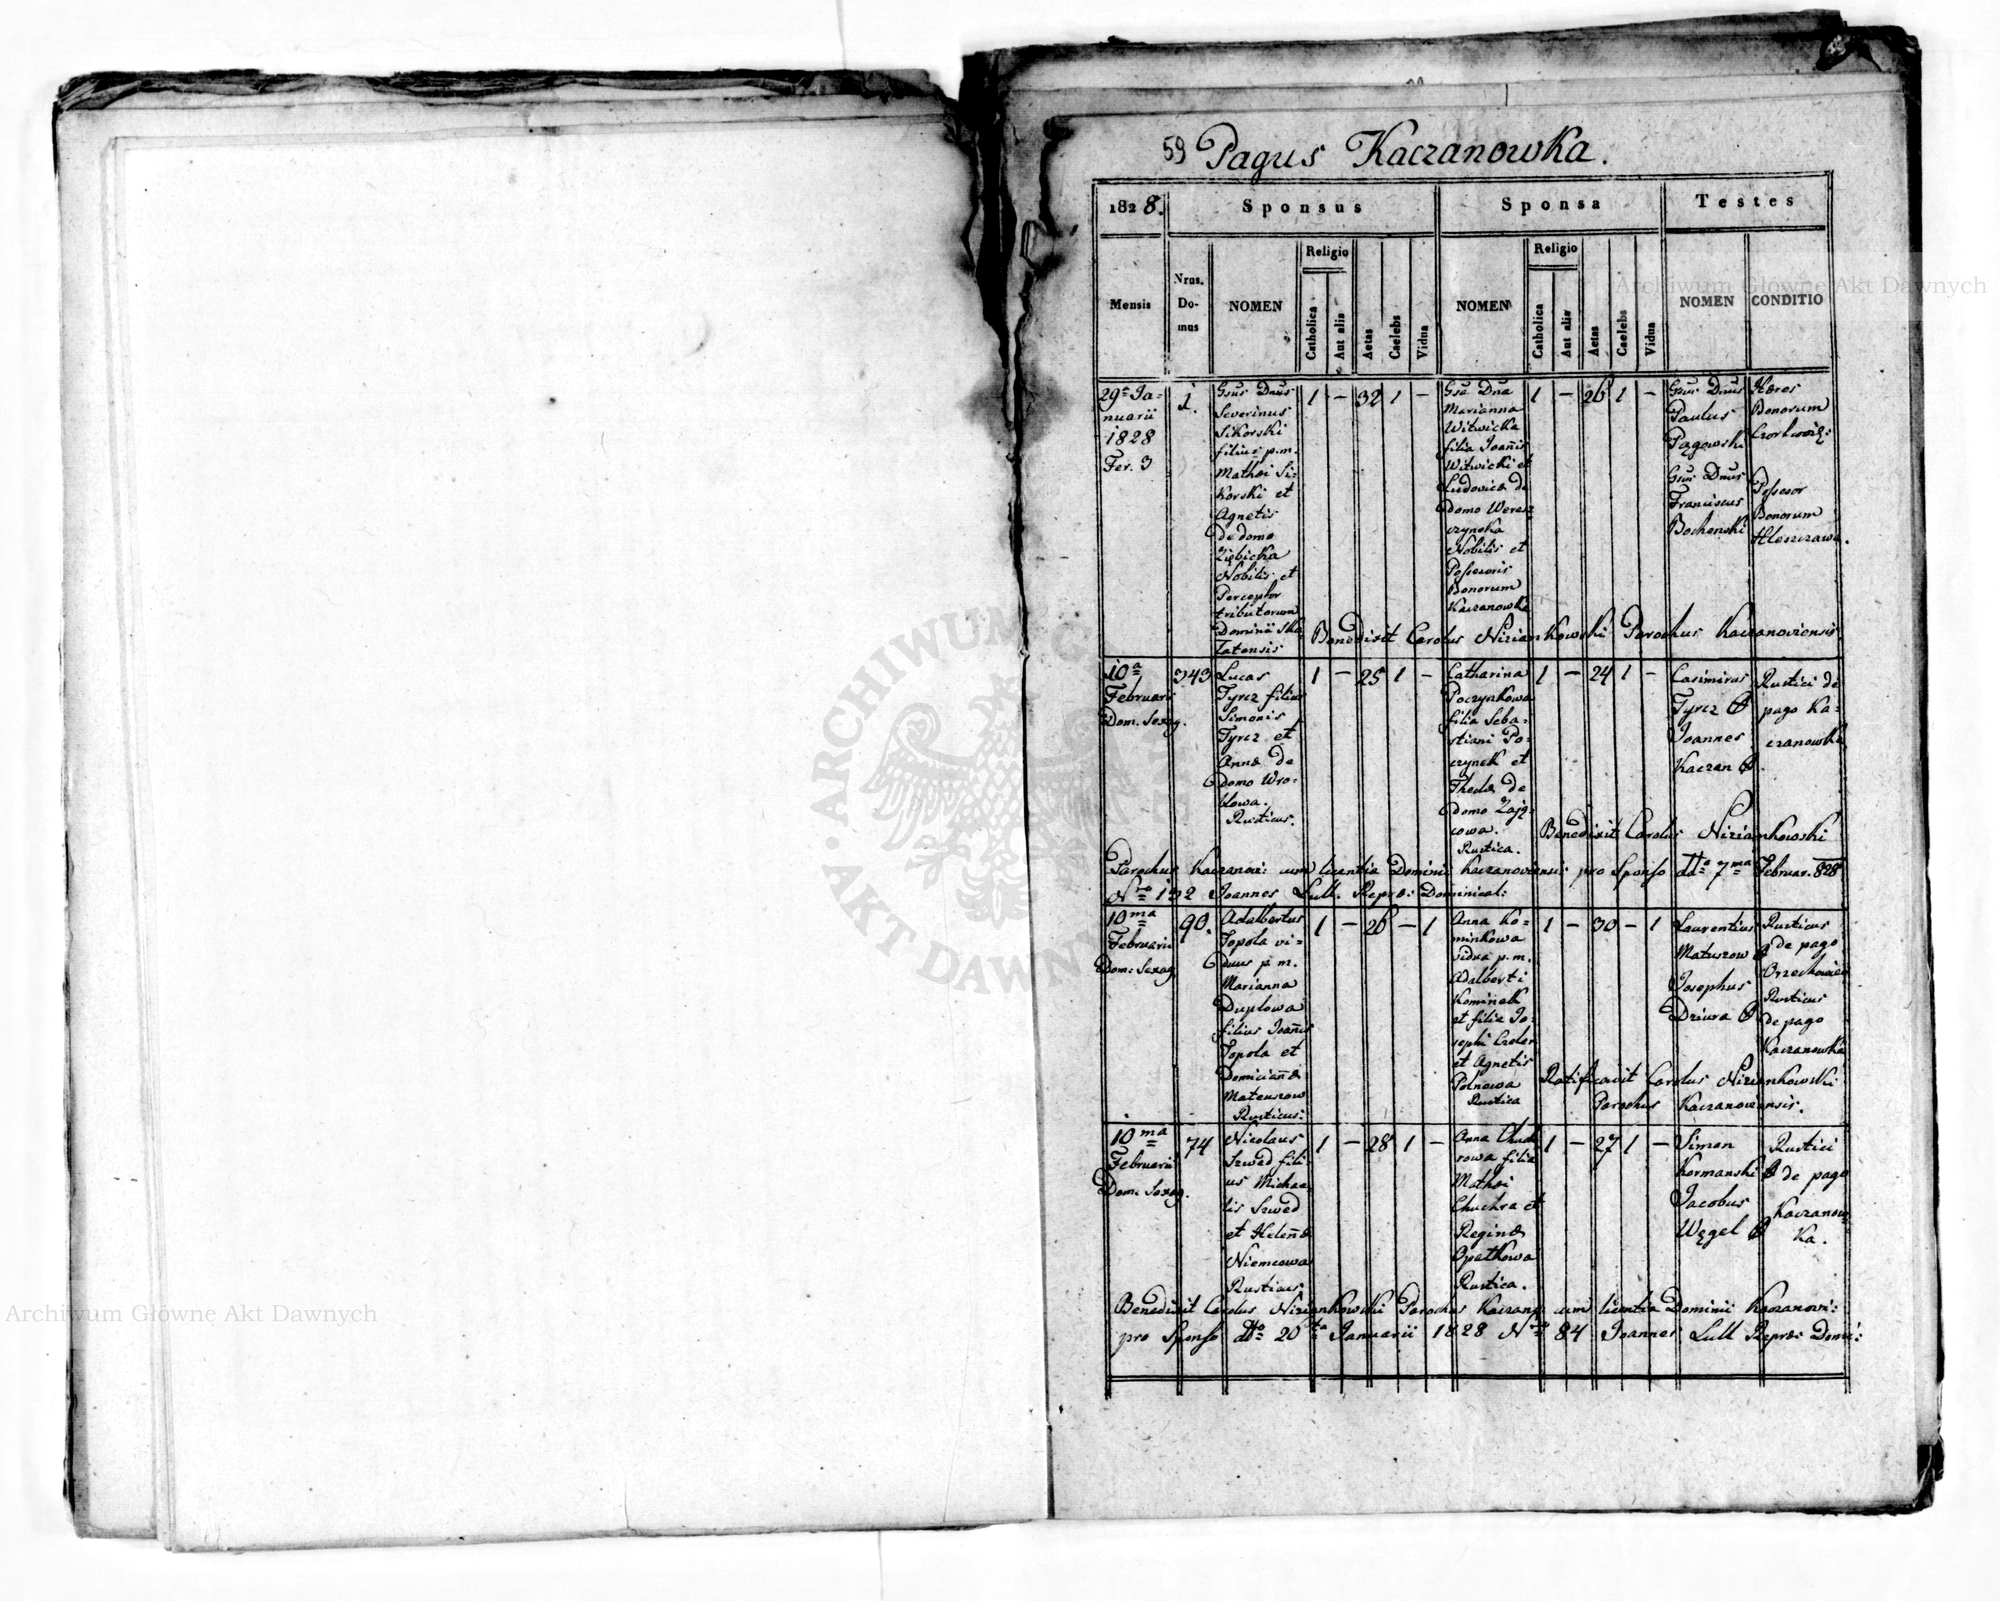 59 Pagus Kaczanowka.
1828. Sponsus Sponsa Testes
Mensis
Nrus. Do- mus
NOMEN
Religio
Catholica
Aut alia
Aetas
Caelebs
Vidua
NOMEN
Religio
Catholica
Aut alia
Aetas
Caelebs
Vidua
NOMEN
CONDITIO
29a Ja-
nuarii
1828
Fer. 3
1.
Gsus Dnus
Severinus
Sikorski
filius p.m.
Mathæi Si-
korski et
Agnetis
de domo
Ziębicka
Nobilis et
Perceptor
tributorum
Dominii Ska
latensis
1 – 32 1 –
Gsa Dna
Marianna
Witwicka
filia Joañis
Witwicki et
Ludovicæ de
domo Weresz
czynska
Nobilis et
Possesoris
Bonorum
Kaczanowka
1 – 26 1 –
Gsus Dnus
Paulus
Pągowski
Gsus Dnus
Franciscus
Bochenski
Hæres
Bonorum
Possesor
Bonorum
Hleszczawa.
Benedixit Carolus Nizian Kowski Parochus Kaczanoviensis
10a
Februarii
Dom. Sexag.
343
Lucas
Tyrcz filius
Simonis
Tyrcz et
Annæ de
domo Wro-
blowa.
Rusticus.
1 – 25 1 –
Catharina
Poczynkowa
filia Seba-
stiani Po-
czynek et
Theclæ de
domo Zają-
cowa.
Rustica.
1 – 24 1 –
Casimirus
Tyrcz
Joannes
Kaczan
Rustici de
pago Ka-
czanowka
Benedixit Carolus Niziankowski
Parochus Kaczanov: cum licentia Dominii Kaczanoviensis pro Sponso ddo 7ma Februar. 828
Nro 132 Joannes Lull. Repræ: Dominical:
10ma
Februarii
Dom: Sexag.
90.
Adalbertus
Topola vi-
duus p.m.
Marianna
Duplowa
filius Joañis
Topola et
Domiciañæ
Mateuszow
Rusticus:
1 – 26 – 1
Anna Ko-
minkowa
vidua p.m.
Adalberti
Kominek
et filia Jo-
sephi Czoler
et Agnetis
Polnowa
Rustica
1 – 30 – 1
Laurentius
Matuszow
Josephus
Dziura
Rusticus
de pago
Orzechowiec
Rusticus
de pago
Kaczanowka
Ratificavit Carolus Niziankowski
Parochus Kaczanoviensis.
10ma
Februarii
Dom. Sexag.
74
Nicolaus
Szwed fili-
us Michae
lis Szwed
et Heleñæ
Niemcowa
Rusticus
1 – 28 1 –
Anna Chuch
rowa filia
Mathæi
Chuchra et
Reginæ
Opatkowa
Rustica.
1 – 27 1 –
Simon
Kormanski
Jacobus
Węgel
Rustici
de pago
Kaczanow-
ka.
Benedixit Carolus Niziankowski Parochus Kaczanov: cum licentia Dominii Kaczanovi:
pro Sponso ddo 20ta Januarii 1828 Nro 84 Joannes Lull Repræ: Domi:
Archiwum Główne Akt Dawnych
Archiwum Główne Akt Dawnych